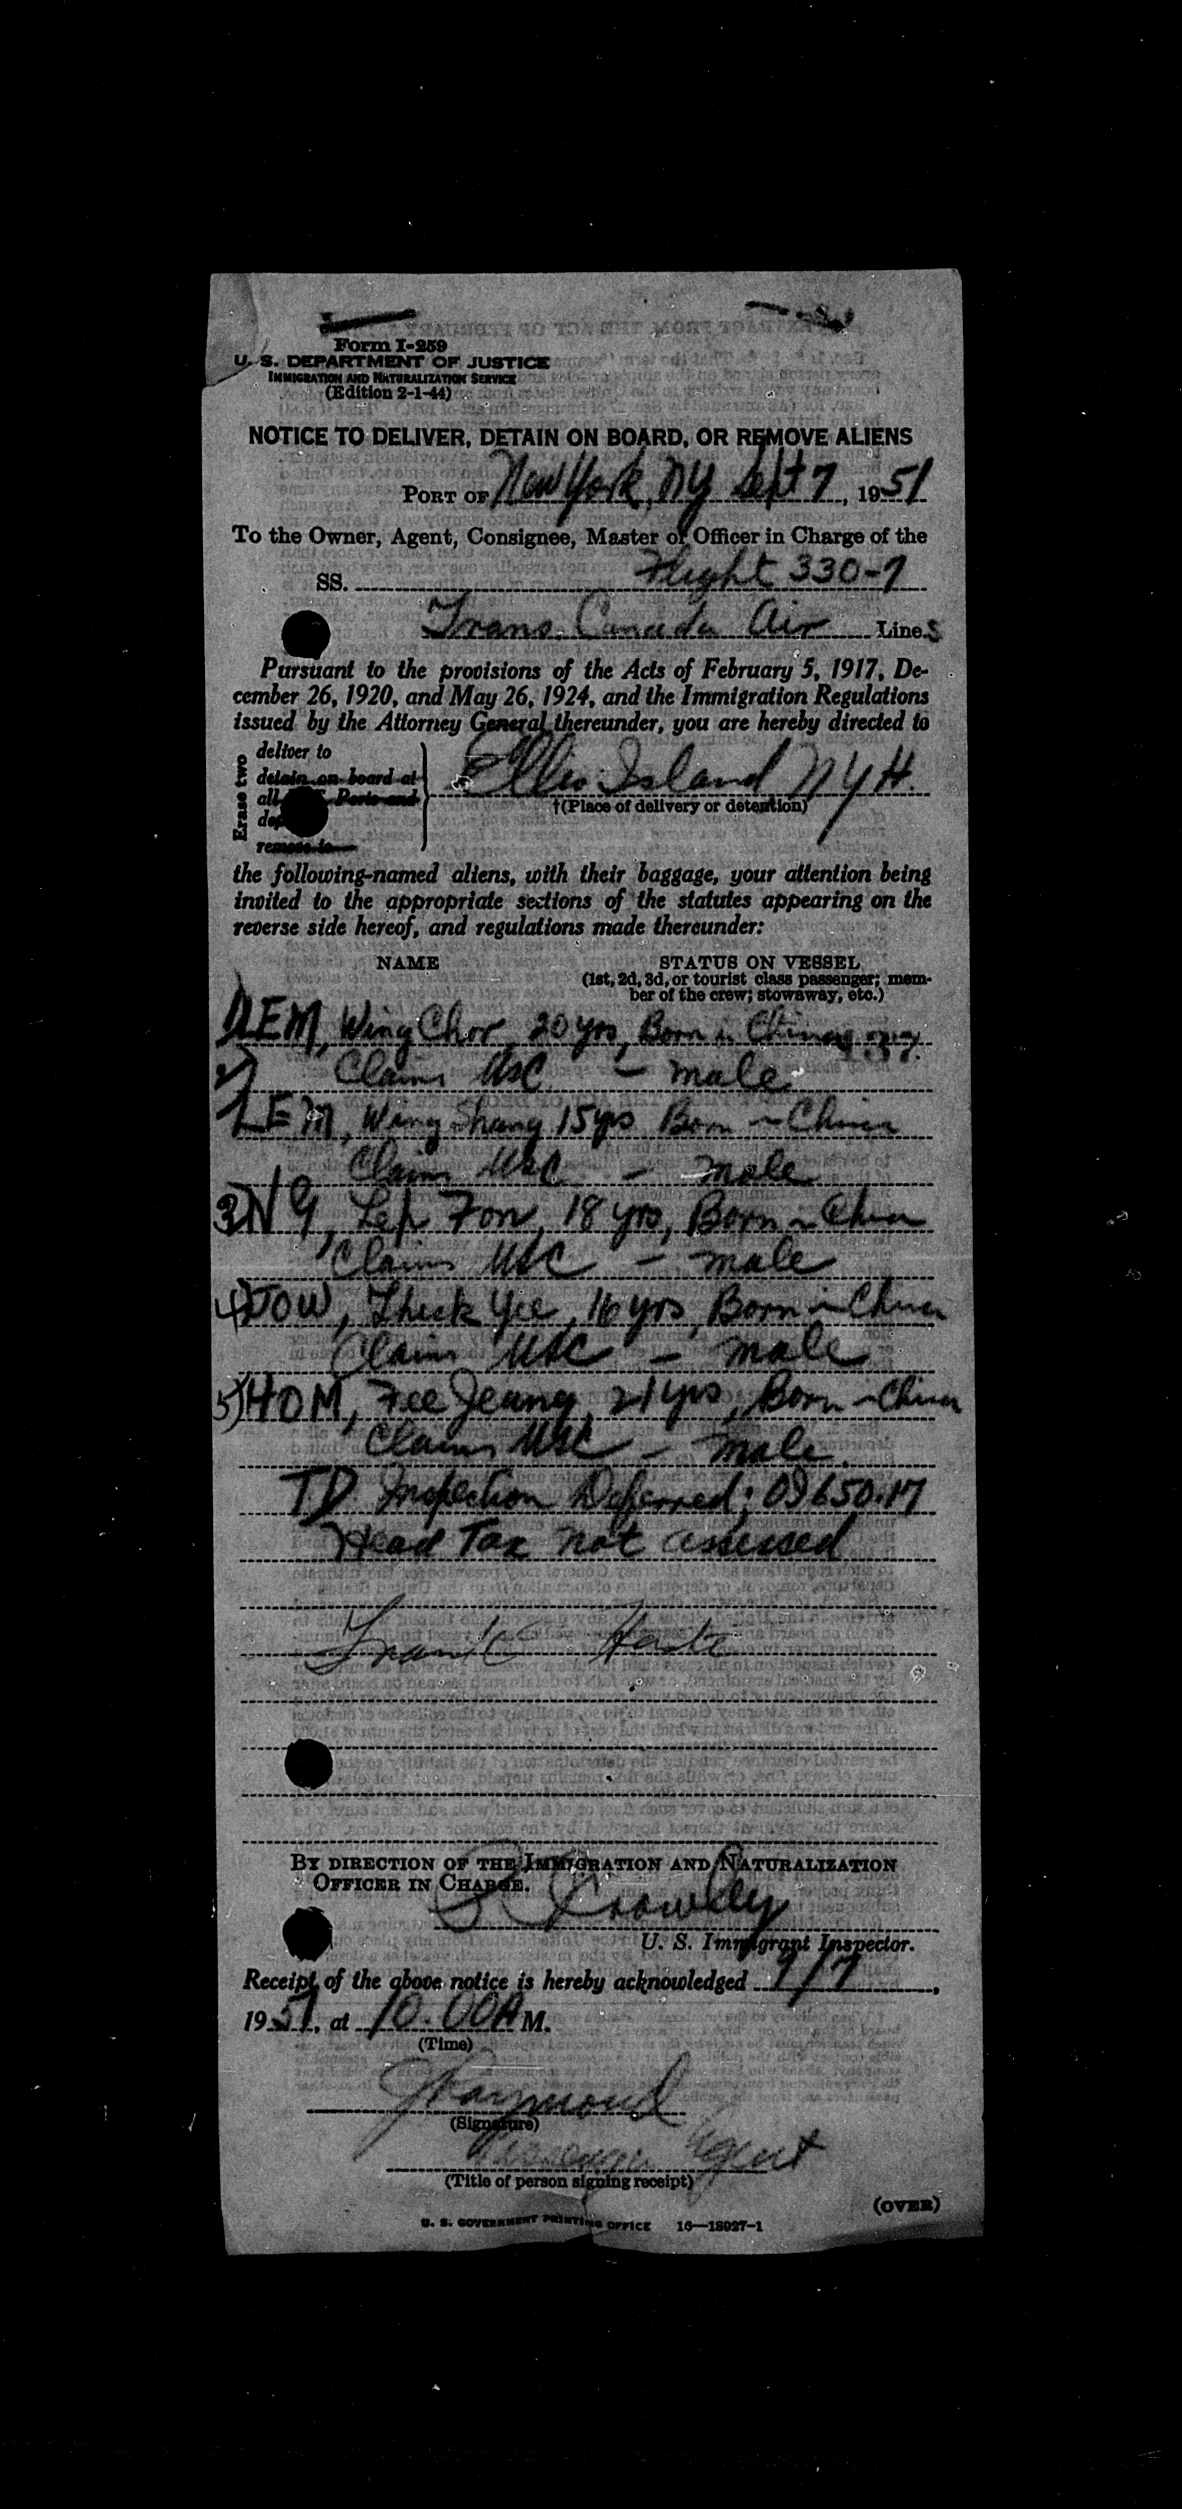 Form I-259
U. S. DEPARTMENT OF JUSTICE
IMMIGRATION AND NATURALIZATION SERVICE
(Edition 2-1-44)
NOTICE TO DELIVER, DETAIN ON BOARD, OR REMOVE ALIENS
PORT OF New York, NY Sept 7, 1951
To the Owner, Agent, Consignee, Master or Officer in Charge of the
SS. Flight 330-7
Trans. Canada Air Lines
Pursuant to the provisions of the Acts of February 5, 1917, De-
cember 26, 1920, and May 26, 1924, and the Immigration Regulations
issued by the Attorney General thereunder, you are hereby directed to
Erase two
deliver to
detain on board at
all Ports and
remove to
Ellis Island NYH.
†(Place of delivery or detention)
the following-named aliens, with their baggage, your attention being
invited to the appropriate sections of the statutes appearing on the
reverse side hereof, and regulations made thereunder:
NAME STATUS ON VESSEL
(1st, 2d, 3d, or tourist class passenger; mem-
ber of the crew; stowaway, etc.)
1) LEM, Wing Chor, 20 yrs, Born in China
Claims USC - male
2) LEM, Wing Shang 15 yrs Born in China
Claims USC - male
3) NG, Lep Fon, 18 yrs, Born in China
Claims USC - male
4) JOW, Sheck Yee, 16 yrs, Born in China
Claims USC - male
5) HOM, Fee Jeung, 21 yrs, Born in China
Claims USC - male.
TD Inspection Deferred; 09650.17
Head Tax not assessed
Frank
BY DIRECTION OF THE IMMIGRATION AND NATURALIZATION
OFFICER IN CHARGE.
Crowley
U. S. Immigrant Inspector.
Receipt of the above notice is hereby acknowledged 9/7,
1951, at 10.00A M.
(Time)
J Raymond
(Signature)
Passenger Agent
(Title of person signing receipt)
(OVER)
U. S. GOVERNMENT PRINTING OFFICE 16—18027-1